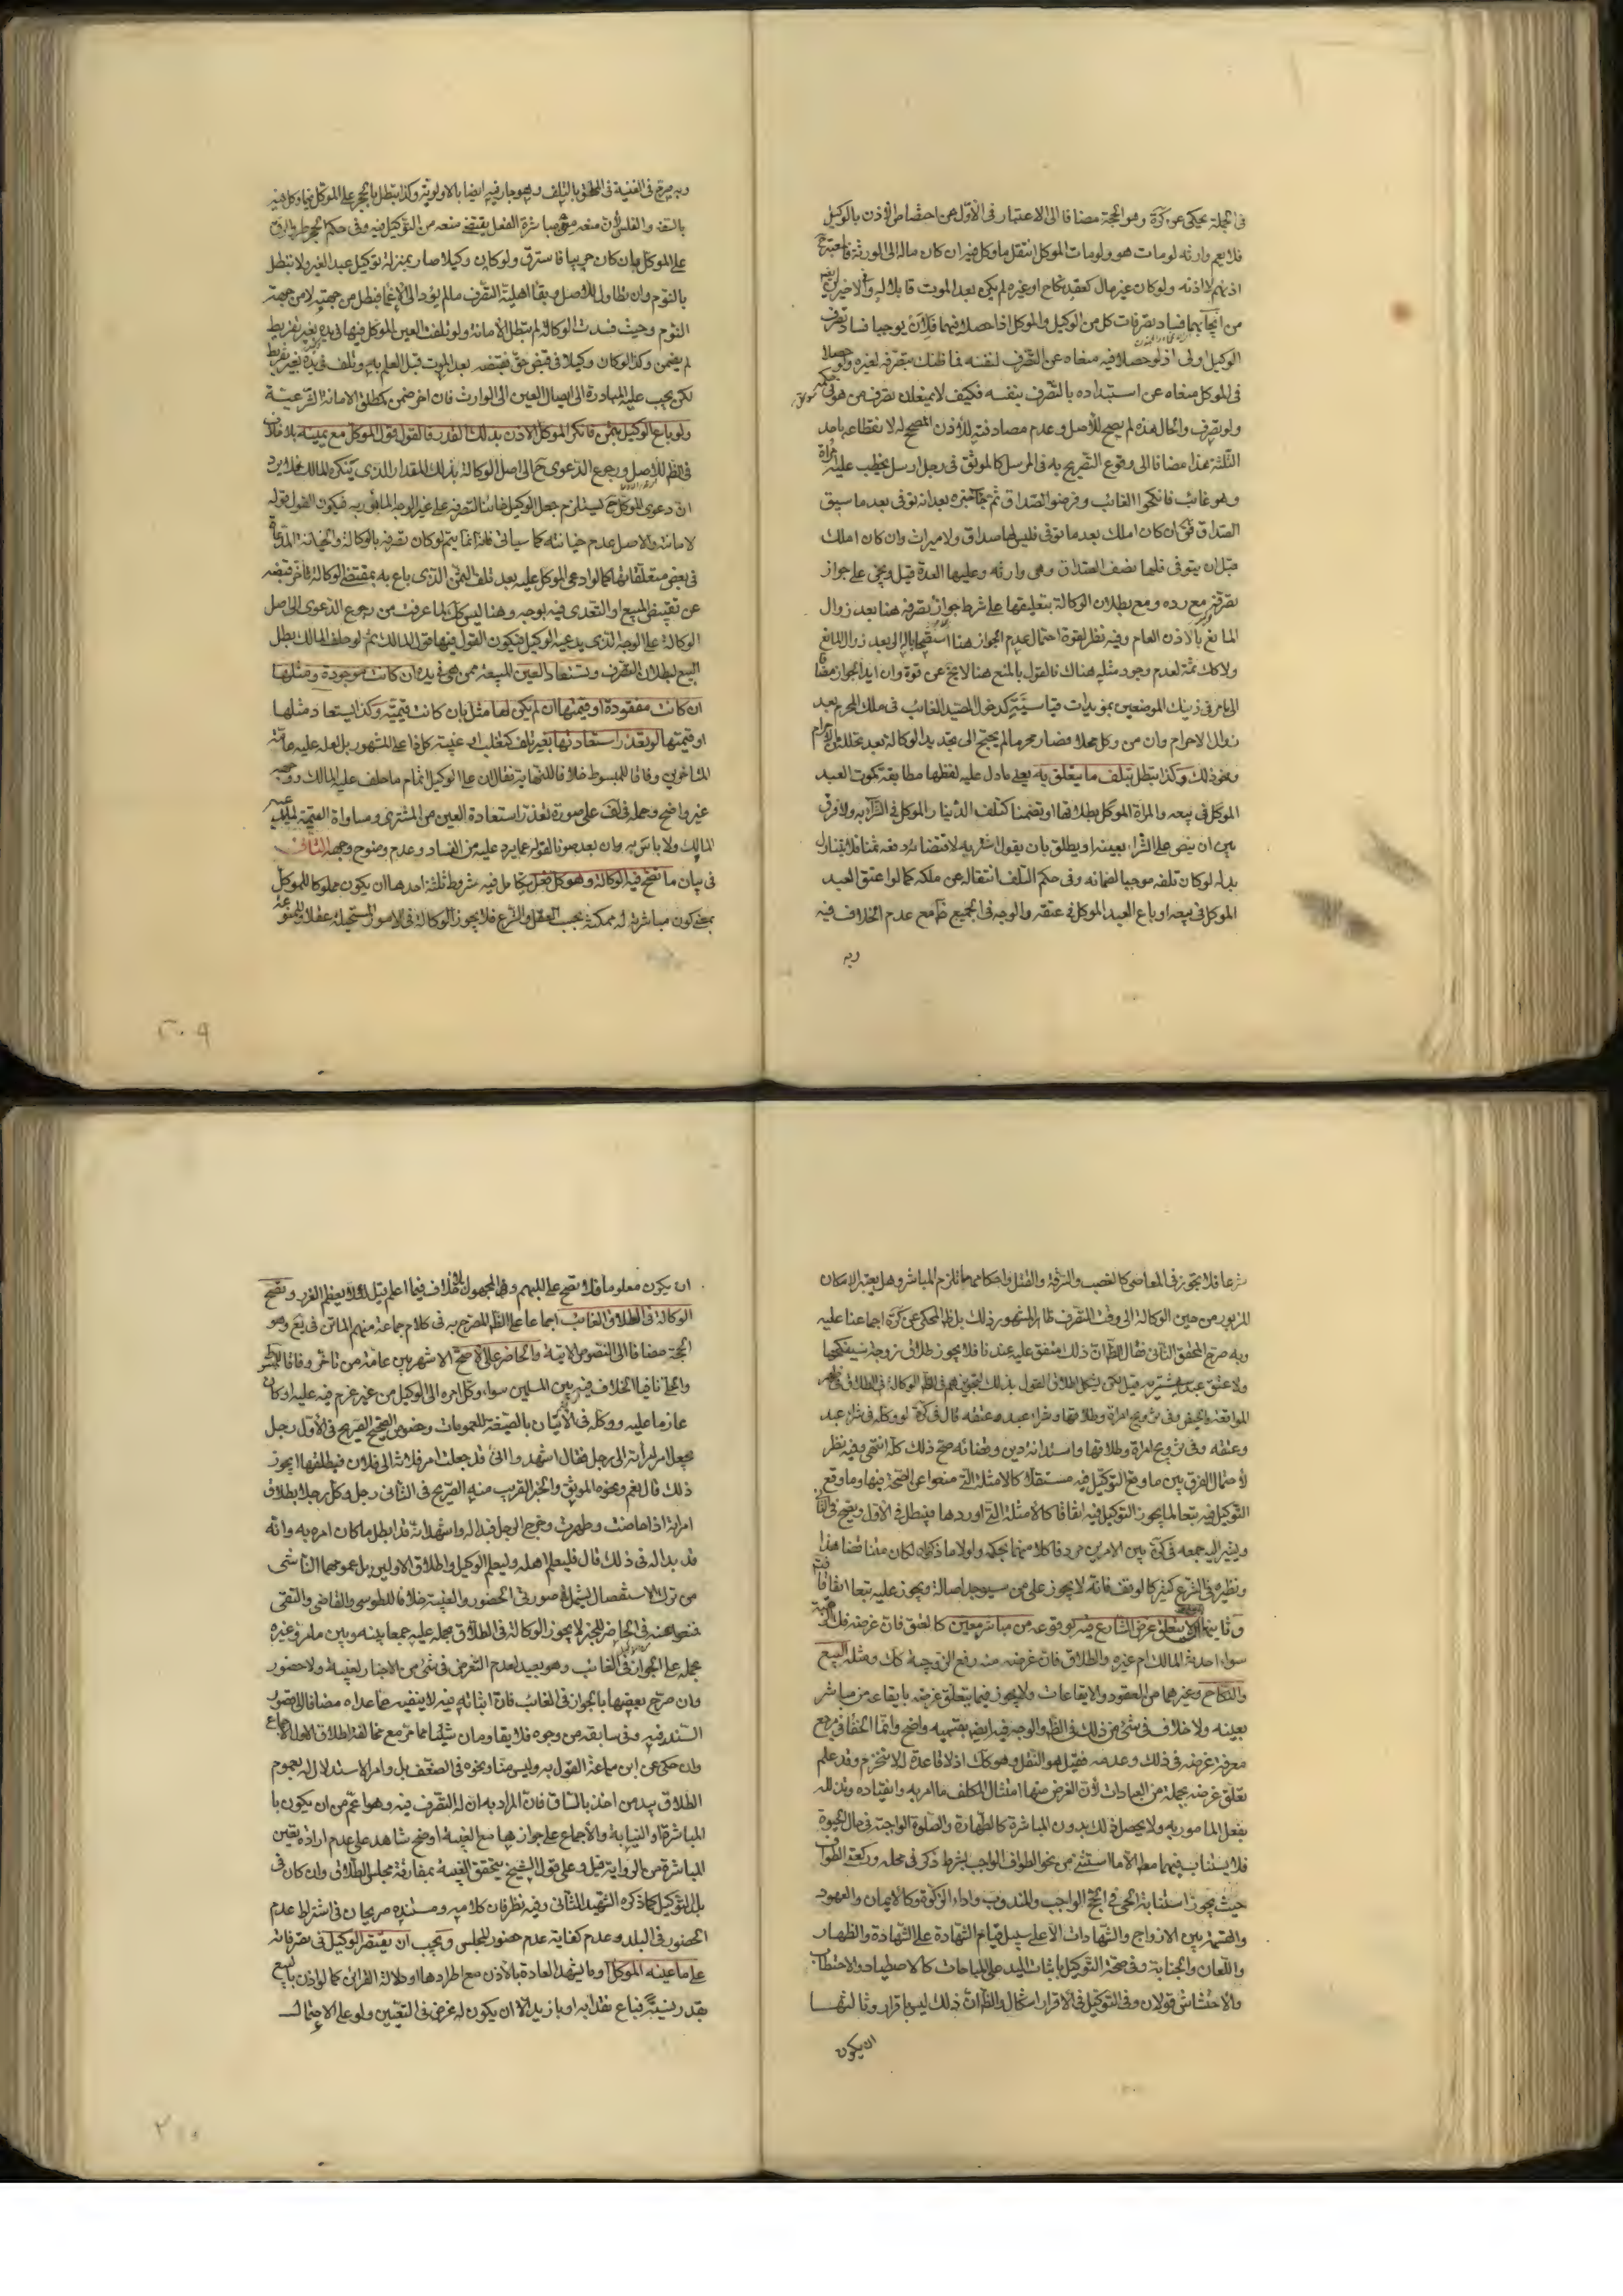 في الجملة يحكى عن كرة وهو الحجة مضافا الى الاعتبار في الاول من اختصاص الاذن بالوكيل
فلا يعم وارثه لو مات هو ولو مات الموكل انتقل ما وكل فيه ان كان مالا الى الورثة
اذنهم لا اذنه ولو كان غير مال كعقد نكاح او غيره لم يكن بعد الموت قابلا له وفي الاخيرين
من ايجابهما فساد تصرفات كل من الوكيل والموكل اذا حصلا فيهما فلان يوجبا فساد تصرف
الوكيل اولى اذ لو حصلا فيه منعاه عن التصرف لنفسه فما ظنك بتصرفه لغيره ولو حصلا
في الموكل منعاه عن استبداده بالتصرف بنفسه فكيف لا يمنعان تصرف من هو في حكمه
ولو تصرف والحال هذه لم يصح للاصل وعدم مصادفته للاذن المصحح له لانقطاعه باحد
الثلثة هذا مضافا الى وقوع التصريح به في المرسل كالموثق في رجل ارسل يخطب عليه امراة
وهو غائب فانكحوا الغائب وفرضوا الصداق ثم جاء خبره بعد انه توفي بعد ما سيق
الصداق فق ان كان املك بعد ما توفي فليس لها صداق ولا ميراث وان كان املك
قبل ان يتوفى فلها نصف الصداق وهي وارثه وعليها العدة قيل ويخى على جواز
تصرفه مع رده ومع بطلان الوكالة بتعليقها على شرط جواز تصرفه هنا بعد زوال
المانع بالاذن العام وفيه نظر لقوة احتمال عدم الجواز هنا استصحابا له الى بعد زوال المانع
ولا كك ثمة لعدم وجود مثله هناك فالقول بالمنع هنا لا يخ عن قوة وان ايد الجواز مضافا
الى ما مر في ذينك الموضعين بمؤيدات قياسية كدخول الصيد الغائب في ملك المحرم بعد
زوال الاحرام وان من وكل محلا فصار محرما لم يحتج الى تجديد الوكالة بعد تحلله من الاحرام
ونحو ذلك وكذا تبطل بتلف ما يتعلق به يعني ما دل عليه لفظها مطابقة كموت العبد
الموكل في بيعه والمراة الموكل بطلاقها او تضمنا كتلف الدينار الموكل في الشراء به ولا فرق
بين ان ينص على الشراء بعينه او يطلق بان يقول اشتر به لاقتضائه دفعه ثمنا فلا يتناول
بدله لو كان تلفه موجبا لضمانه وفي حكم التلف انتقاله عن ملكه كما لو اعتق العبد
الموكل في بيعه او باع العبد الموكل في عتقه والوجه في الجميع ظ مع عدم الخلاف فيه
وبه
وبه صرح في الغنية في الملحق بالتلف وهو جار فيه ايضا بالاولوية وكذا تبطل بالحجر على الموكل فيما وكل فيه
بالسفه والفلس لان منعه من مباشرة الفعل يقتضي منعه من التوكيل فيه وفي حكم الحجر طرو الرق
على الموكل بان كان حربيا فاسترق ولو كان وكيلا صار بمنزلة توكيل عبد الغير ولا تبطل
بالنوم وان تطاول للاصل وبقاء اهلية التصرف ما لم يؤد الى الاغماء فبطل من جهته لا من جهة
النوم وحيث فسدت الوكالة لم تبطل الامانة ولو تلفت العين الموكل فيها في يده بغير تفريط
لم يضمن وكذا لو كان وكيلا في قبض حق فقبضه بعد الموت قبل العلم به وتلف في يده بغير تفريط
لكن يجب عليه المبادرة الى ايصال العين الى الوارث فان اخر ضمن كمطلق الامانة الشرعية
ولو باع الوكيل بثمن فانكر الموكل الاذن بذلك القدر فالقول قول الموكل مع يمينه بلا خلاف
في الظ للاصل ورجوع الدعوى ح الى اصل الوكالة بذلك المقدار الذي ينكره المالك فلا يرد
ان دعوى الموكل ح يستلزم جعل الوكيل خائنا لتصرفه على غير الوجه المأمور به فيكون القول قوله
لامانته والاصل عدم خيانته كما سياتي فان هذا انما يتم لو كان تصرفه بالوكالة والخيانة المدعاة
في بعض متعلقاتها كما لو ادعى الموكل عليه بعد تلف الثمن الذي باع به بمقتضى الوكالة تاخر قبضه
عن تقبيض المبيع او التعدي فيه بوجه وهنا ليس كك لما عرفت من رجوع الدعوى الى اصل
الوكالة على الوجه الذي يدعيه الوكيل فيكون القول فيها قول المالك ثم لو حلف المالك بطل
البيع لبطلان التصرف وتستعاد العين المبيعة ممن هي في يده ان كانت موجودة ومثلها
ان كانت مفقودة او قيمتها ان لم يكن لها مثل بان كانت قيمية وكذا يستعاد مثلها
او قيمتها لو تعذر استعادتها بغير تلف كتغلب او غيبته كل ذا على المشهور بل لعله عليه عامة
المتاخرين وفاقا للمبسوط خلافا للنهاية فقال ان على الوكيل اتمام ما حلف عليه المالك ووجهه
غير واضح وحمله في لف على صورة تعذر استعادة العين من المشتري ومساواة القيمة لما يدعيه
المالك ولا باس به وان بعد صونا لقوله عما يرد عليه من الفساد وعدم وضوح وجهه الثاني
في بيان ما تصح فيه الوكالة وهو كل فعل يتكامل فيه شروط ثلثة احدها ان يكون مملوكا للموكل
بمعنى كون مباشرته له ممكنة بحسب العقل والشرع فلا يجوز الوكالة في الامور المستحيلة عقلا والممنوعة
٢٠٩
شرعا فلا يجوز في المعاصي كالغصب والسرقة والقتل واحكامها تلزم المباشر وهل يعتبر الامكان
المزبور من حين الوكالة الى وقت التصرف ظاهر المشهور ذلك بل ظ المحكي عن كرة اجماعنا عليه
وبه صرح المحقق الثاني فقال الظ ان ذلك متفق عليه عندنا فلا يجوز طلاق زوجة سينكحها
ولا عتق عبد سيشتريه قيل لكن يشكل اطلاق القول بذلك لتجويزهم في الظ الوكالة في الطلاق في طهر
المواقعة والحيض وفي تزويج امراة وطلاقها وشراء عبد وعتقه قال في كرة لو وكله في شراء عبد
وعتقه وفي تزويج امراة وطلاقها واستدانة دين وقضائه صح ذلك كله انتهى وفيه نظر
لاحتمال الفرق بين ما وقع التوكيل فيه مستقلا كالامثلة التي منعوا عن الصحة فيها وما وقع
التوكيل فيه تبعا لما يجوز التوكيل فيه اتفاقا كالامثلة التي اوردها فيبطل في الاول ويصح في الثاني
ويشير اليه جمعه في كرة بين الامرين مردفا كلا منهما بحكمه ولولا ما ذكرناه لكان متناقضا هذا
ونظيره في الشرع كثير كالوقف فانه لا يجوز على من سيوجد اصالة ويجوز عليه تبعا اتفاقا
وثانيها ان لا يتعلق غرض الشارع فيه بوقوعه من مباشر معين كالعتق فان غرضه فك الرقبة
سواء احدثه المالك ام غيره والطلاق فان غرضه منه رفع الزوجية كك ومثله البيع
والنكاح وغيرهما من العقود والايقاعات ولا يجوز فيما يتعلق غرضه بايقاعه من مباشر
بعينه ولا خلاف في شيء من ذلك في الظ والوجه فيه ايض بقسميه واضح وانما الخفاء في مرجع
معرفة غرضه في ذلك وعدمه فقيل هو النقل وهو كك اذ لا قاعدة له لا تنخرم وقد علم
تعلق غرضه بجملة من العبادات لان الغرض منها امتثال المكلف ما امر به وانقياده وتذلله
بفعل المامور به ولا يحصل ذلك بدون المباشرة كالطهارة والصلوة الواجبة في حال الحيوة
فلا يستناب فيهما مط الا ما استثنى من نحو الطواف الواجب بشرط ذكر في محله وركعتي الطواف
حيث يجوز استنابة الحي في الحج الواجب والمندوب واداء الزكوة وكالايمان والعهود
والقسمة بين الازواج والشهادات الا على سبيل قيام الشهادة على الشهادة والظهار
واللعان والجناية وفي صحة التوكيل باثبات اليد على المباحات كالاصطياد والاحتطاب
والاحتشاش قولان وفي التوكيل في الاقرار اشكال والظ ان ذلك ليس باقرار وثالثها
ان يكون
ان يكون معلوما فلا تصح على المبهم وفي المجهول بلا خلاف فيما اعلم قيل لئلا يعظم الغرر وتصح
الوكالة في الطلاق للغائب اجماعا على الظ المصرح به في كلام جماعة منهم الماتن في يع وهو
الحجة مضافا الى النصوص الاتية والحاضر على الاصح الاشهر بين عامة من تاخر وفاقا للمبسوط
والحلي نافيا الخلاف فيه بين المسلمين سواء وكل امره الى الوكيل من غير عزم فيه عليه او كان
عازما عليه ووكله في الاتيان بالصيغة للعمومات وخصوص الصحيح الصريح في الاول رجل
يجعل امر امراته الى رجل فقال اشهدوا اني قد جعلت امر فلانة الى فلان فيطلقها ايجوز
ذلك قال نعم ونحوه الموثق والخبر القريب منه الصريح في الثاني رجل وكل رجلا بطلاق
امراته اذا حاضت وطهرت وخرج الرجل فبدا له واشهد انه قد ابطل ما كان امره به وانه
قد بدا له في ذلك قال فليعلم اهله وليعلم الوكيل واطلاق الاولين بل عمومهما الناشي
من ترك الاستفصال يشمل صورتي الحضور والغيبة خلافا للطوسي والقاضي والتقي
فمنعوا عنه في الحاضر للخبر لا يجوز الوكالة في الطلاق بحمله عليه جمعا بينه وبين ما مر وغيره
بحمله على الجواز في الغائب وهو بعيد لعدم التعرض في شيء من الاخبار لغيبة ولا حضور
وان صرح بعضها بالجواز في الغائب فان اثباته فيه لا ينفيه عما عداه مضافا الى قصور
السند فيه وفي سابقه من وجوه فلا يقاومان شيئا مما مر مع مخالفة اطلاق الاول الاجماع
وان حكى عن ابن سماعة القول به وليس منا ونحوه في الضعف بل وامر الاستدلال له بعموم
الطلاق بيد من اخذ بالساق فان المراد به ان له التصرف فيه وهو اعم من ان يكون با
المباشرة او النيابة والاجماع على جوازها مع الغيبة اوضح شاهد على عدم ارادة تعين
المباشرة من الرواية قيل وعلى قول الشيخ يتحقق الغيبة بمفارقة مجلس الطلاق وان كان في
بلد التوكيل كما ذكره الشهيد الثاني وفيه نظر فان كلاميه ومستنده صريحان في اشتراط عدم
الحضور في البلد وعدم كفاية عدم حضور المجلس ويجب ان يقتصر الوكيل في تصرفاته
على ما عينه الموكل او ما يشهد العادة بالاذن مع اطرادها او دلالة القرائن كما لو اذن بالبيع
بقدر نسيئة فباع نقدا به او بازيد الا ان يكون له غرض في التعيين ولو على الاحتمال